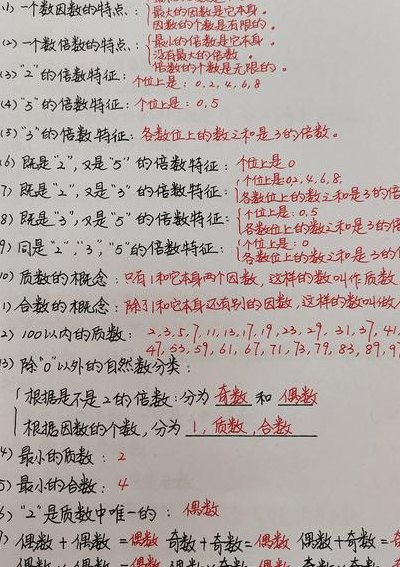 (1) 一个数因数的特点：
最大的因数是它本身。
因数的个数是有限的。
(2) 一个数倍数的特点：
最小的倍数是它本身。
没有最大的倍数。
倍数的个数是无限的。
(3) "2"的倍数特征：个位上是：0,2,4,6,8
(4) "5"的倍数特征：个位上是：0,5
(5) "3"的倍数特征：各数位上的数之和是3的倍数。
(6) 既是"2",又是"5"的倍数特征：个位上是0
7) 既是"2",又是"3"的倍数特征：
个位上是0,2,4,6,8.
各数位上的数之和是3的倍
8) 既是"3",又是"5"的倍数特征：
个位上是：0,5
各数位上的数之和是3的倍
9) 同是"2","3","5"的倍数特征：
个位上是：0
各数位上的数之和是3的
10) 质数的概念：只有1和它本身两个因数，这样的数叫作质数
1) 合数的概念：除了1和它本身还有别的因数，这样的数叫做
2) 100以内的质数：2,3,5,7,11,13,17,19,23,29,31,37,41
47,53,59,61,67,71,73,79,83,89,97
3) 除"0"以外的自然数分类：
根据是不是2的倍数：分为 奇数 和 偶数
根据因数的个数，分为 1,质数,合数
4) 最小的质数：2
5) 最小的合数：4
6) "2"是质数中唯一的：偶数
偶数+偶数=偶数 奇数+奇数=偶数 偶数+奇数=